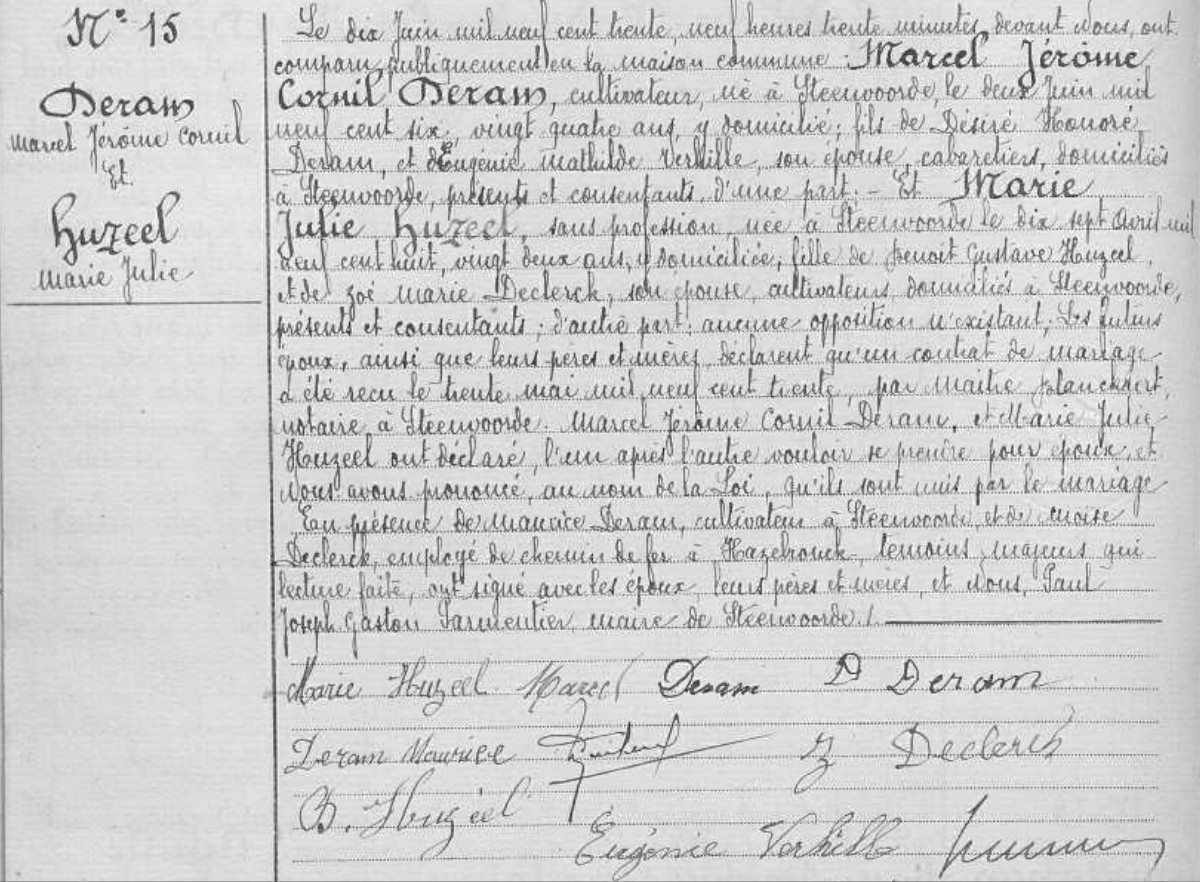 N° 15
Deram
Marcel Jérôme Cornil
Et
Huzeel
Marie Julie
Le dix Juin mil neuf cent trente, neuf heures trente minutes, devant Nous, ont
comparu publiquement en la maison commune : Marcel Jérôme
Cornil Deram, cultivateur, né à Steenvoorde, le deux Juin mil
neuf cent six, vingt quatre ans, y domicilié ; fils de Désiré Honoré
Deram, et d'Eugénie Mathilde Verhille, son épouse, cabaretiers, domiciliés
à Steenvoorde, présents et consentants, d'une part. – Et Marie
Julie Huzeel, sans profession, née à Steenvoorde le dix sept Avril mil
neuf cent huit, vingt deux ans, y domiciliée, fille de Benoit Gustave Huzeel,
et de Zoé Marie Declerck, son épouse, cultivateurs domiciliés à Steenvoorde,
présents et consentants ; d'autre part ; aucune opposition n'existant ; Les futurs
époux, ainsi que leurs pères et mères, déclarent qu'un contrat de mariage
a été reçu le trente mai mil neuf cent trente, par Maître Planckaert,
notaire à Steenvoorde. Marcel Jérôme Cornil Deram, et Marie Julie
Huzeel ont déclaré, l'un après l'autre vouloir se prendre pour époux, et
Nous avons prononcé, au nom de la Loi, qu'ils sont unis par le mariage
En présence de Maurice Deram, cultivateur à Steenvoorde, et de Moïse
Declerck, employé de chemin de fer à Hazebrouck, témoins majeurs qui
lecture faite, ont signé avec les époux, leurs pères et mères, et Nous, Paul
Joseph Gaston Parmentier, maire de Steenvoorde ./.
Marie Huzeel Marcel Deram D Deram
Deram Maurice Z Declerck
B. Huzeel
Eugénie Verhille